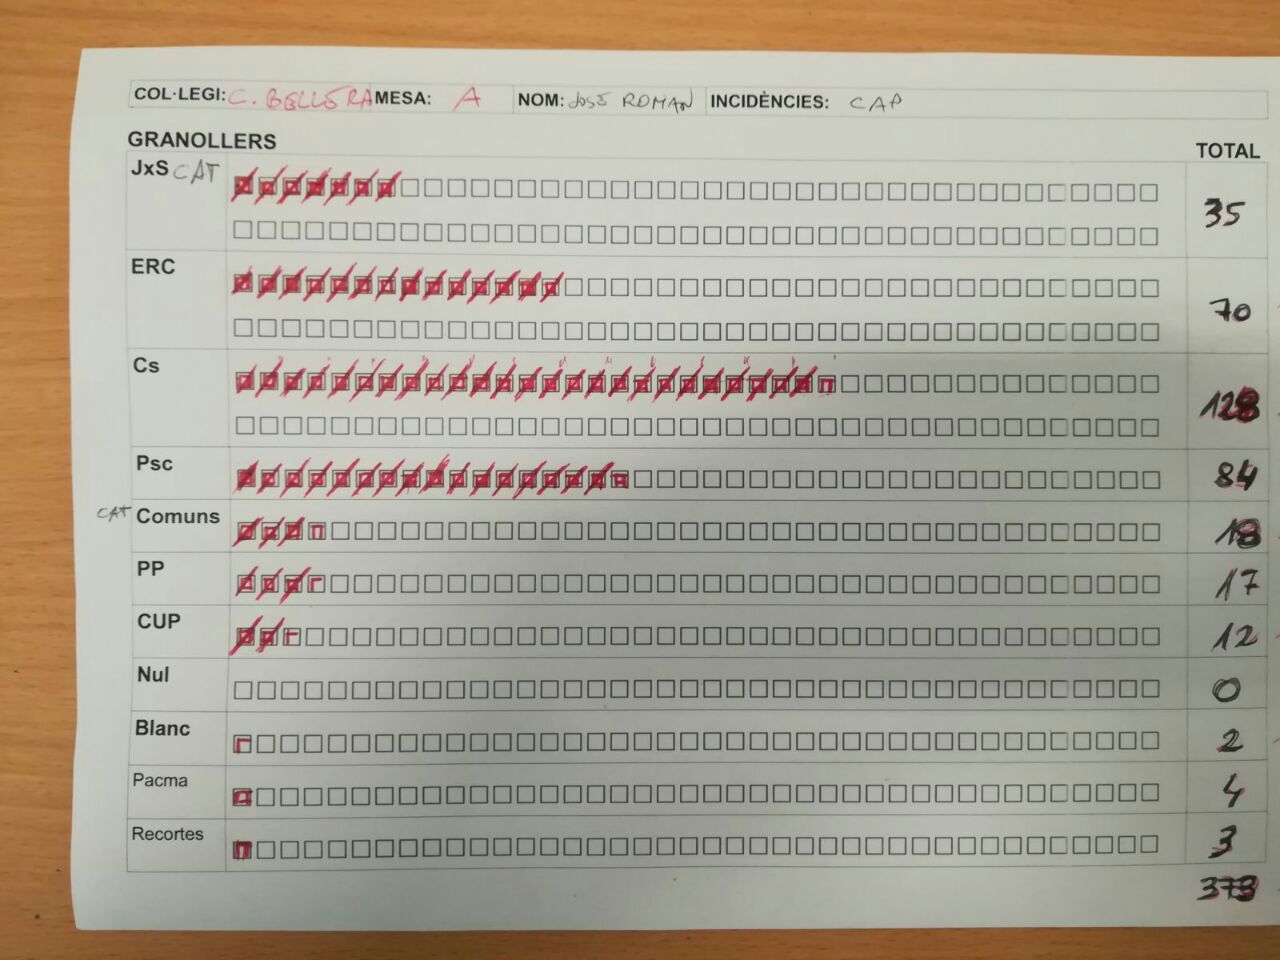 COL·LEGI: C. BELLERA MESA: A NOM: JOSÉ ROMAN INCIDÈNCIES: CAP
GRANOLLERS TOTAL
JxS CAT 35
ERC 70
Cs 128
Psc 84
CAT Comuns 18
PP 17
CUP 12
Nul 0
Blanc 2
Pacma 4
Recortes 3
373